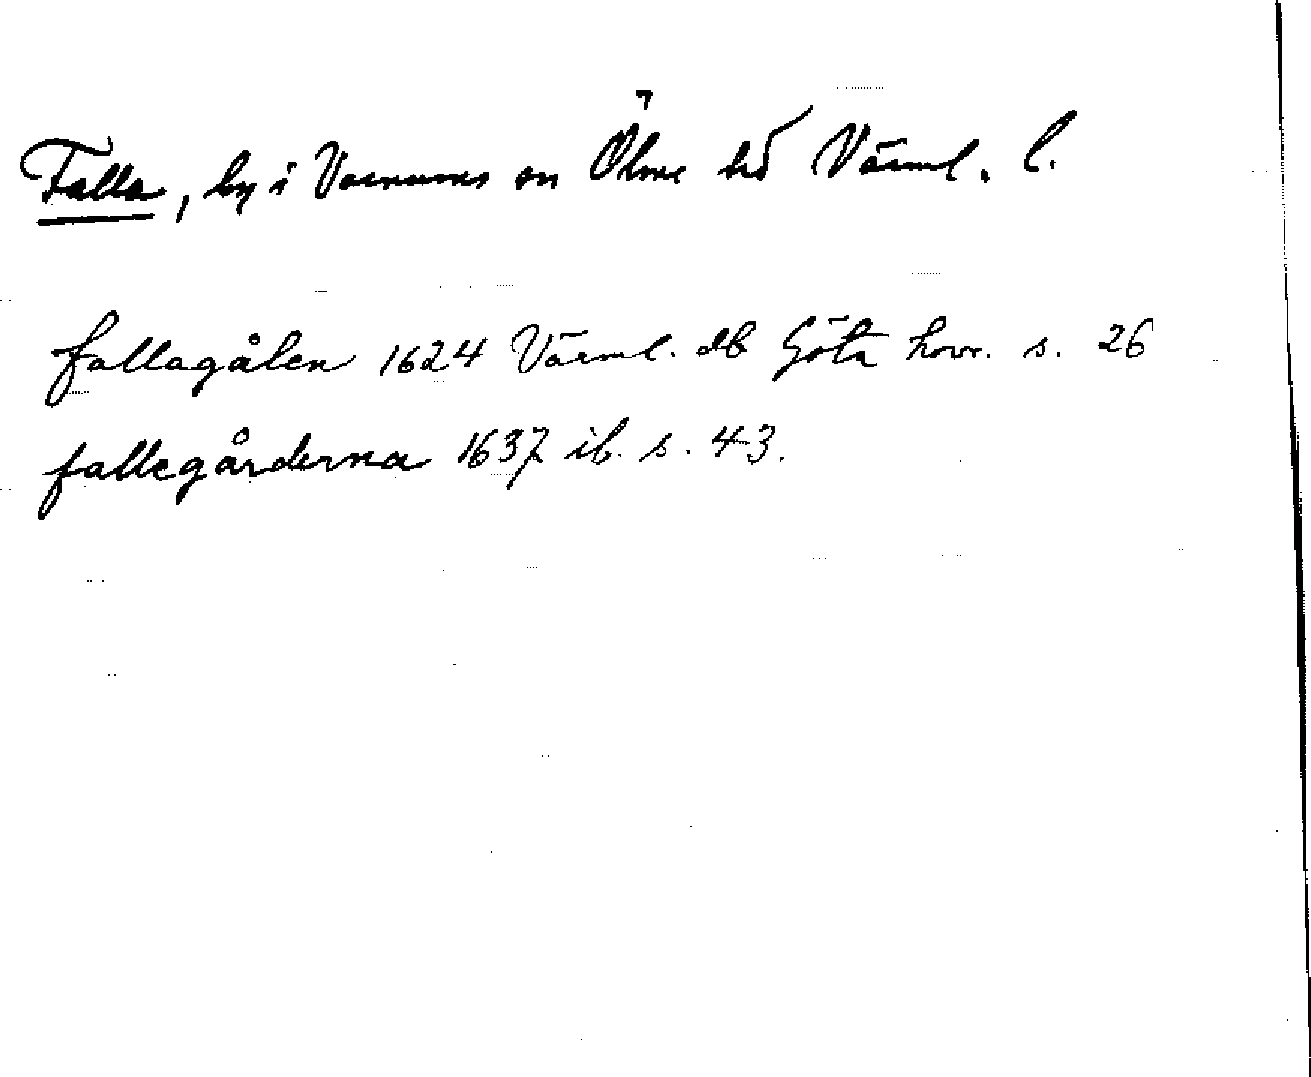 Falla, by i Varnums sn Ölme hd Värml. l.
fallagålen 1624 Värml. db Göta hovr. s. 26
fallegårderna 1637 ib. s. 43.